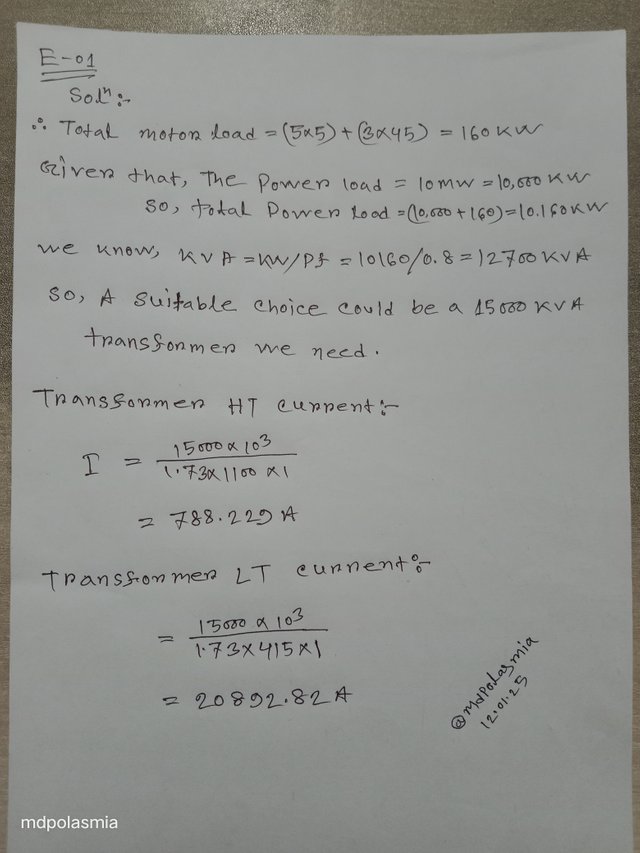 E-01
Solⁿ:-
∴ Total motor load = (5x5) + (3x45) = 160 KW
Given that, The Power load = 10mw = 10,000 KW
So, total Power Load = (10,000 + 160) = 10.160KW
we know, KVA = KW/Pf = 10160/0.8 = 12700 KVA
So, A suitable choice could be a 15000 KVA
transformer we need.
Transformer HT current:-
I = 15000 x 10³ / 1.73 x 1100 x 1
= 788.229 A
Transformer LT current:-
= 15000 x 10³ / 1.73 x 415 x 1
= 20892.82 A
@mdpolasmia
12.01.25
mdpolasmia